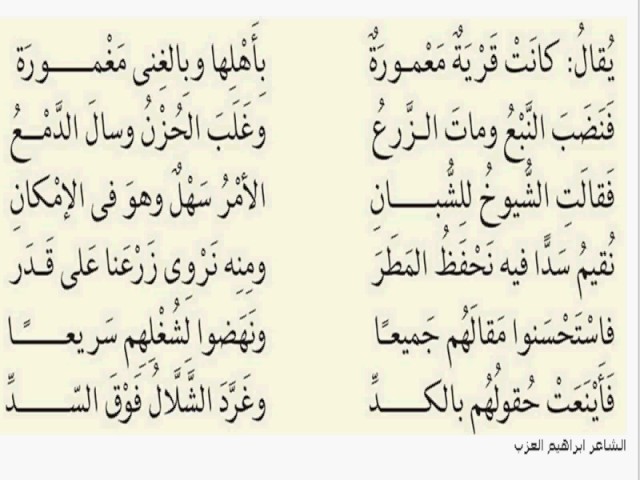 يُقالُ: كانَتْ قَرْيَةٌ مَعْمـورَةٌ بِأَهْلِها وبِالغِنى مَغْمـــورَة
فَنَضَبَ النَّبْعُ وماتَ الـزَّرعُ وغَلَبَ الحُزْنُ وسالَ الدَّمْــعُ
فَقالَتِ الشُّيوخُ لِلشُّبـــانِ الأمْرُ سَهْلٌ وهوَ فى الإمْكانِ
نُقيمُ سَدًّا فيه نَحْفَظُ المَطَرَ ومِنِه نَرْوِى زَرْعَنا عَلى قَـدَر
فاسْتَحْسَنوا مَقالَهُم جَميعًا ونَهَضوا لِشُغْلِهِم سَريعـــًا
فَأَيْنَعَتْ حُقولُهُم بالكــدِّ وغَرَّدَ الشَّلَّالُ فَوْقَ السّـــدِّ
الشاعر ابراهيم العزب